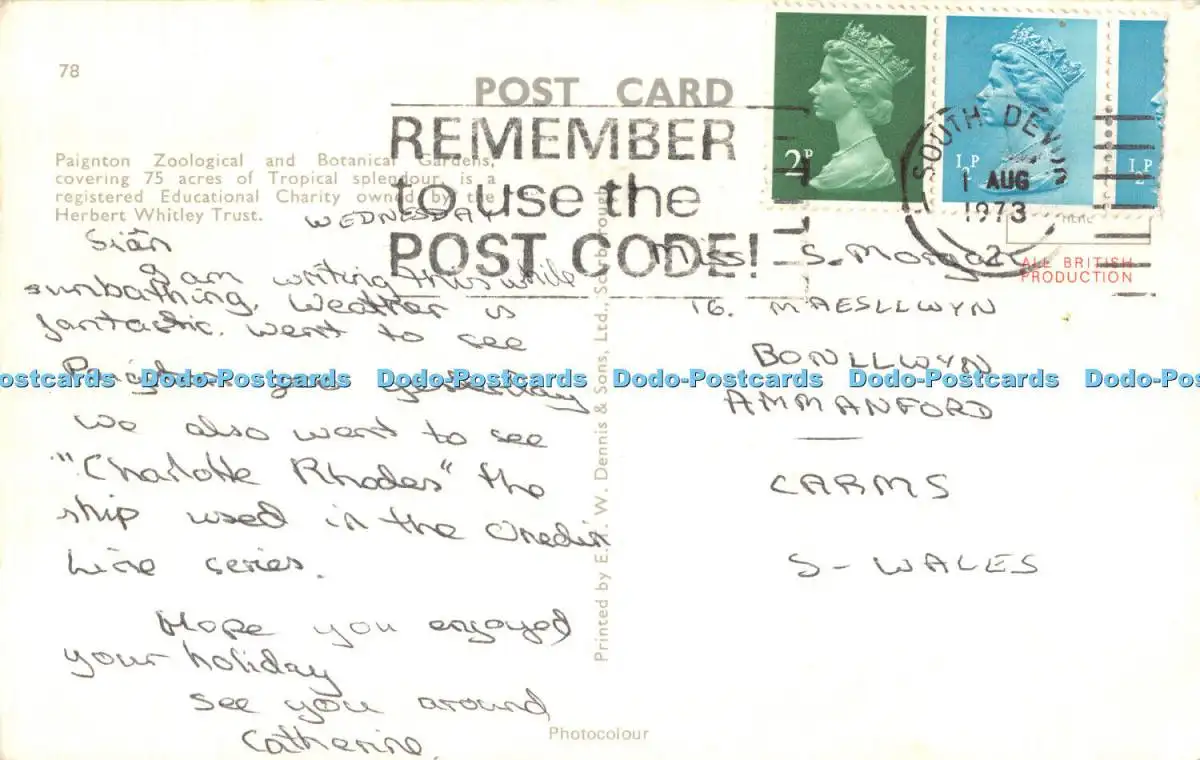 78
POST CARD
REMEMBER
to use the
POST CODE!
Paignton Zoological and Botanical Gardens,
covering 75 acres of Tropical splendour, is a
registered Educational Charity owned by the
Herbert Whitley Trust.
WEDNESDAY
Siân
I am writing this while
sunbathing. Weather is
fantastic. Went to see
Paignton zoo yesterday
We also went to see
"Charlotte Rhodes" the
ship used in the Onedin
Line series.
Hope you enjoyed
your holiday
See you around
Catherine.
Printed by E. T. W. Dennis & Sons, Ltd., Scarborough
Photocolour
2P
½P
½P
SOUTH DEVON
1 AUG
1973
HERE
ALL BRITISH
PRODUCTION
Miss S. Morgan
16. MAESLLWYN
BONLLWYN
AMMANFORD
CARMS
S-WALES
Dodo-Postcards Dodo-Postcards Dodo-Postcards Dodo-Postcards Dodo-Postcards